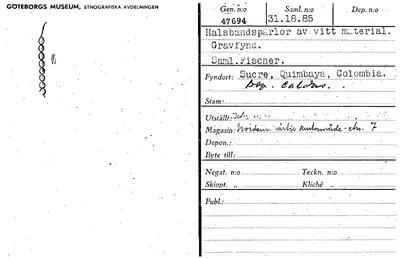 GÖTEBORGS MUSEUM, ETNOGRAFISKA AVDELNINGEN
Gen. n:o Saml. n:o Dep. n:o
47694 31.18.85
Halsbandspärlor av vitt material.
Gravfynd.
Saml.Fischer.
Fyndort: Sucre, Quimbaya, Colombia.
Dep. Caldas.
Stam:
Utställt:
Magasin: 7
Depon.:
Byte till:
Negat. n:o Teckn. n:o
Skiopt. „ Kliché „
Publ.: